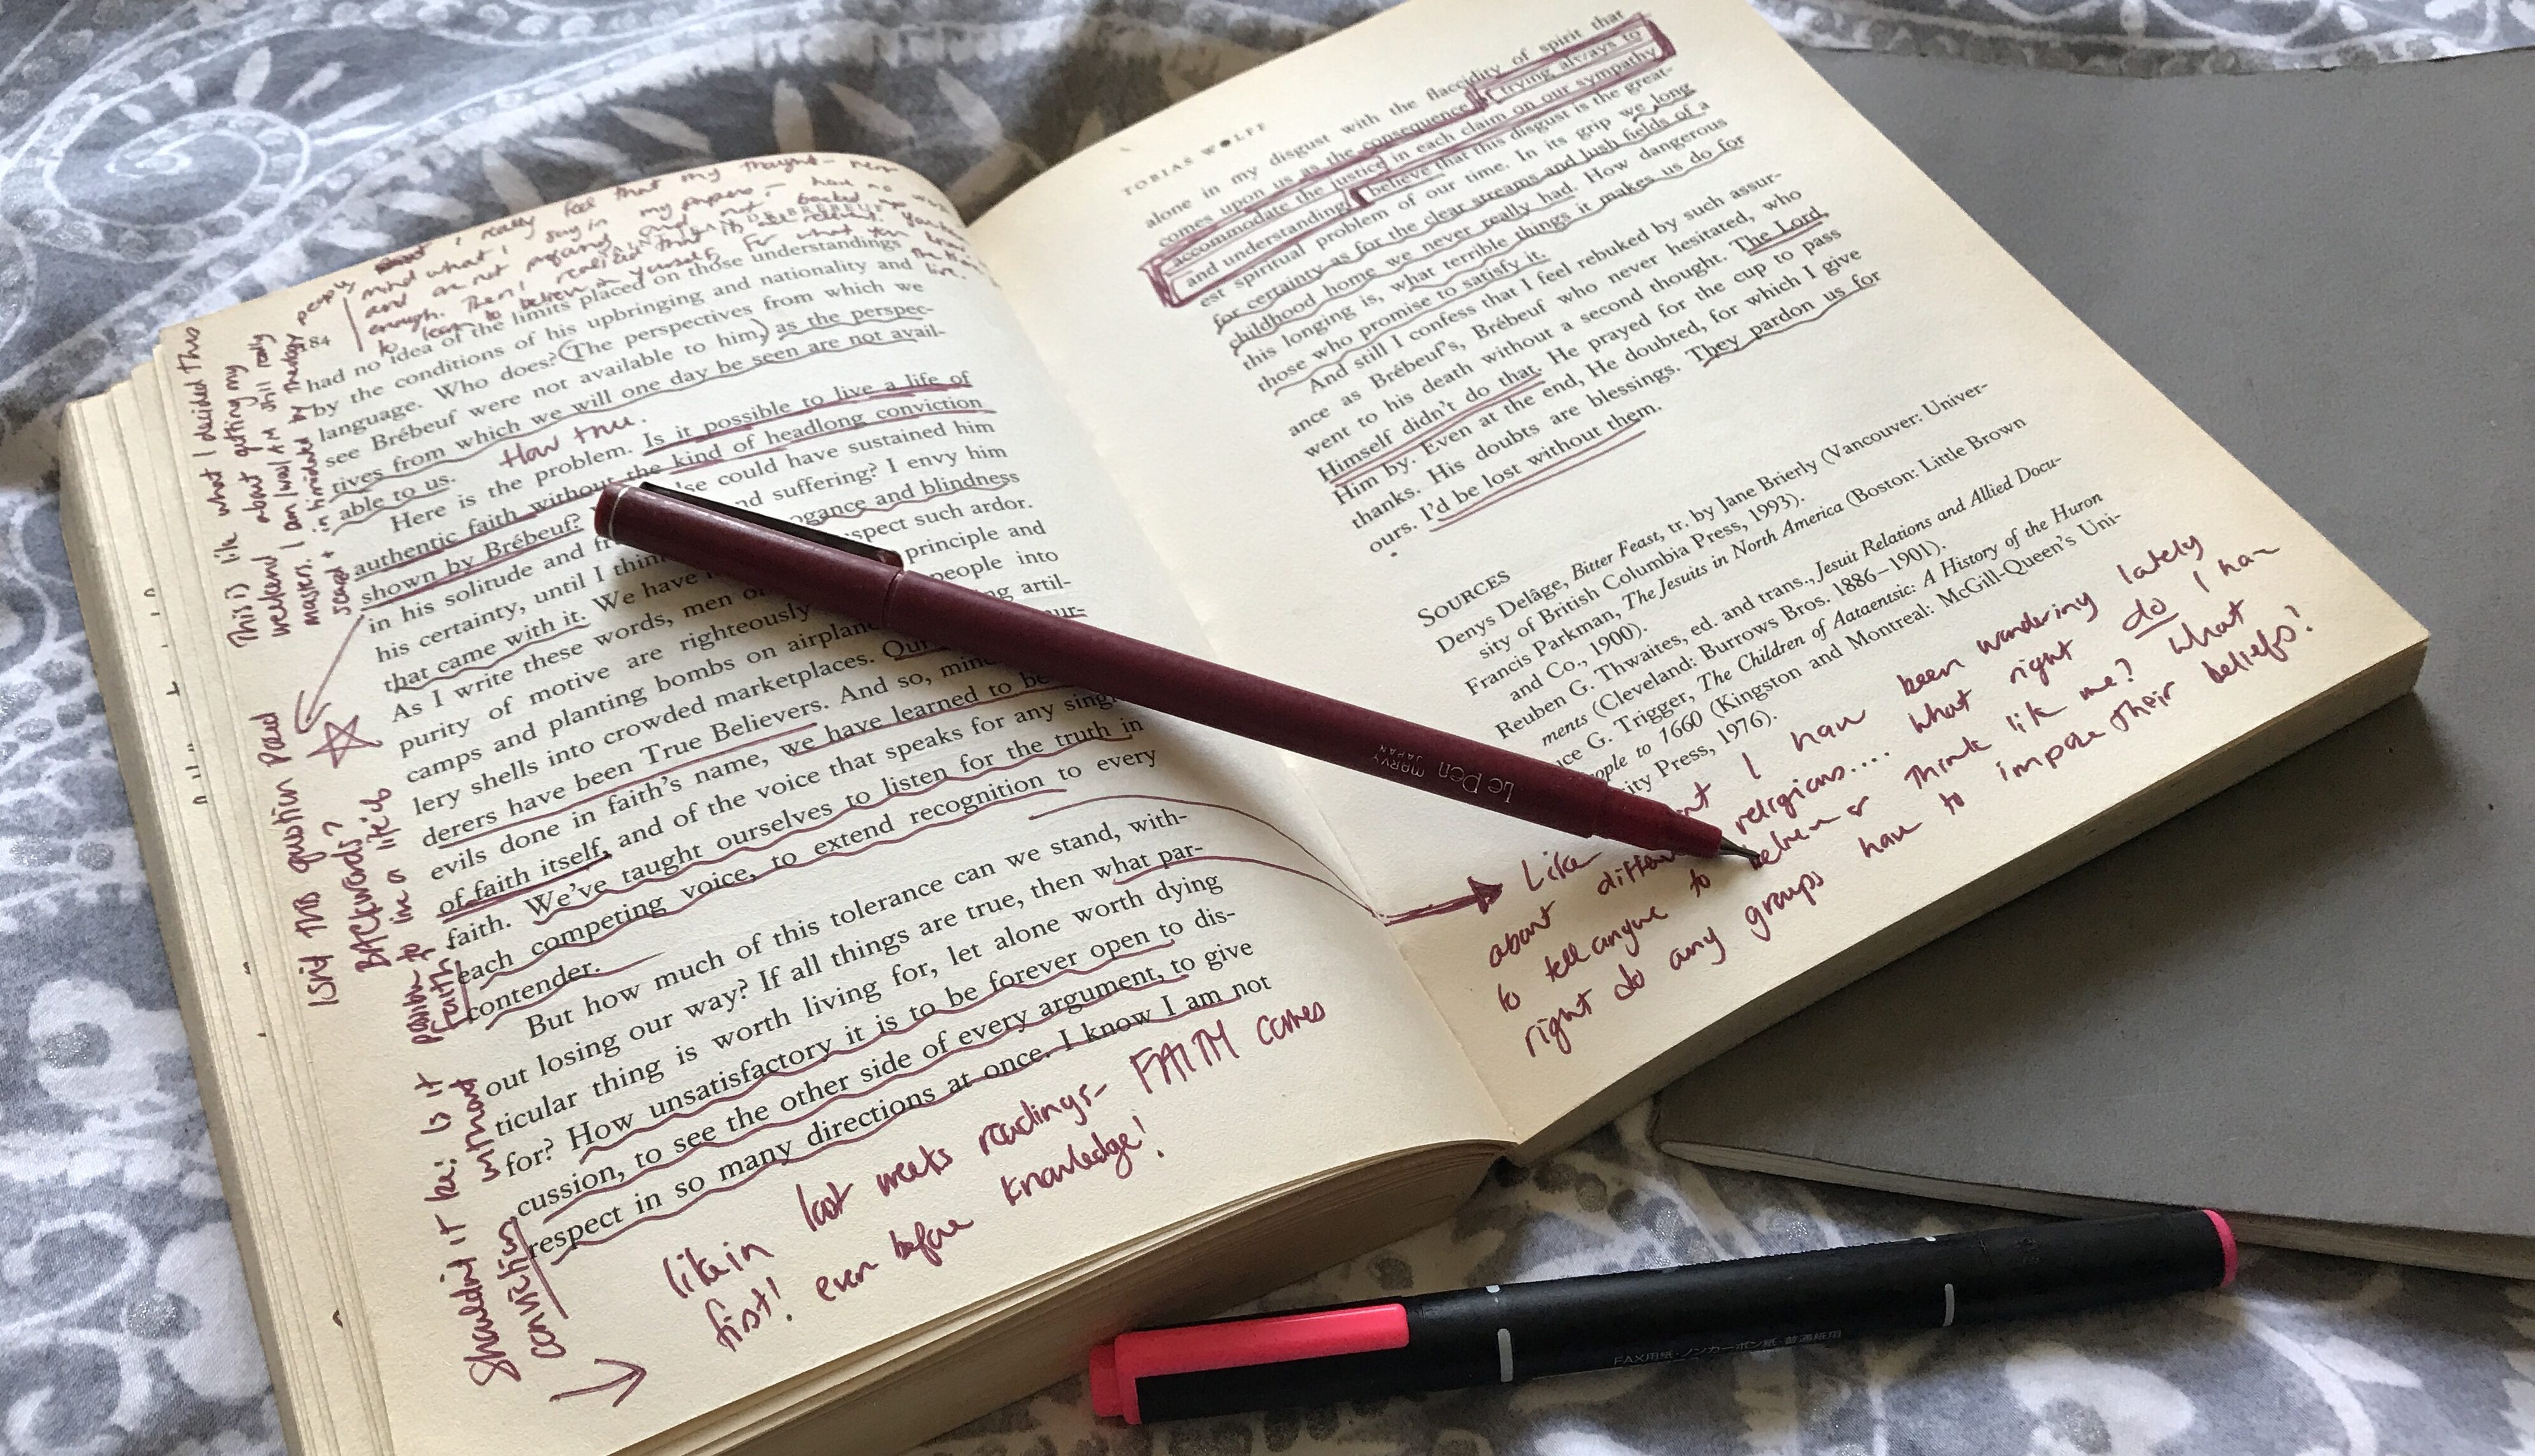 I really feel that my thought-
mind what I say in my papers - have no
and are not profound and not backed up
enough. Then I realised that it's all relevant. You have
to learn to believe in yourself. For what you know
the
line.
84
JEAN DE BRÉBEUF
had no idea of the limits placed on those understandings
by the conditions of his upbringing and nationality and
language. Who does? (The perspectives from which we
see Brébeuf were not available to him,) as the perspec-
tives from which we will one day be seen are not avail-
able to us.
How true.
Here is the problem. Is it possible to live a life of
authentic faith without the kind of headlong conviction
shown by Brébeuf? else could have sustained him
in his solitude and and suffering? I envy him
his certainty, until I think ogance and blindness
that came with it. We have spect such ardor.
As I write these words, men principle and
purity of motive are righteously people into
camps and planting bombs on airplane ing artil-
lery shells into crowded marketplaces. Our mur-
derers have been True Believers. And so, mind
evils done in faith's name, we have learned to be
of faith itself, and of the voice that speaks for any sing
faith. We've taught ourselves to listen for the truth in
each competing voice, to extend recognition to every
contender.
But how much of this tolerance can we stand, with-
out losing our way? If all things are true, then what par-
ticular thing is worth living for, let alone worth dying
for? How unsatisfactory it is to be forever open to dis-
cussion, to see the other side of every argument, to give
respect in so many directions at once. I know I am not
This is like what I decided this
weekend about getting my
masters. I am/was/AM still really
scared + intimidated by theology
people
ISNT THIS question Paul
BACKWARDS?
Shouldn't it be: Is it
possible to live a life of
faith without
conviction
like in last weeks readings- FAITH comes
first! even before knowledge!
TOBIAS WOLFF
alone in my disgust with the flaccidity of spirit that
comes upon us as the consequence of trying always to
accommodate the justice in each claim on our sympathy
and understanding. I believe that this disgust is the great-
est spiritual problem of our time. In its grip we long
for certainty as for the clear streams and lush fields of a
childhood home we never really had. How dangerous
this longing is, what terrible things it makes us do for
those who promise to satisfy it.
And still I confess that I feel rebuked by such assur-
ance as Brébeuf's, Brébeuf who never hesitated, who
went to his death without a second thought. The Lord,
Himself didn't do that. He prayed for the cup to pass
Him by. Even at the end, He doubted, for which I give
thanks. His doubts are blessings. They pardon us for
ours. I'd be lost without them.
SOURCES
Denys Delâge, Bitter Feast, tr. by Jane Brierly (Vancouver: Univer-
sity of British Columbia Press, 1993).
Francis Parkman, The Jesuits in North America (Boston: Little Brown
and Co., 1900).
Reuben G. Thwaites, ed. and trans., Jesuit Relations and Allied Docu-
ments (Cleveland: Burrows Bros. 1886–1901).
uce G. Trigger, The Children of Aataentsic: A History of the Huron
ople to 1660 (Kingston and Montreal: McGill-Queen's Uni-
sity Press, 1976).
Like I have been wondering lately
about differ religions.... what right do I have
to tell anyone to believe or think like me? what
right do any groups have to impose their beliefs?
Le Pen
MARVY
JAPAN
FAX用紙・ノンカーボン紙・普通紙用